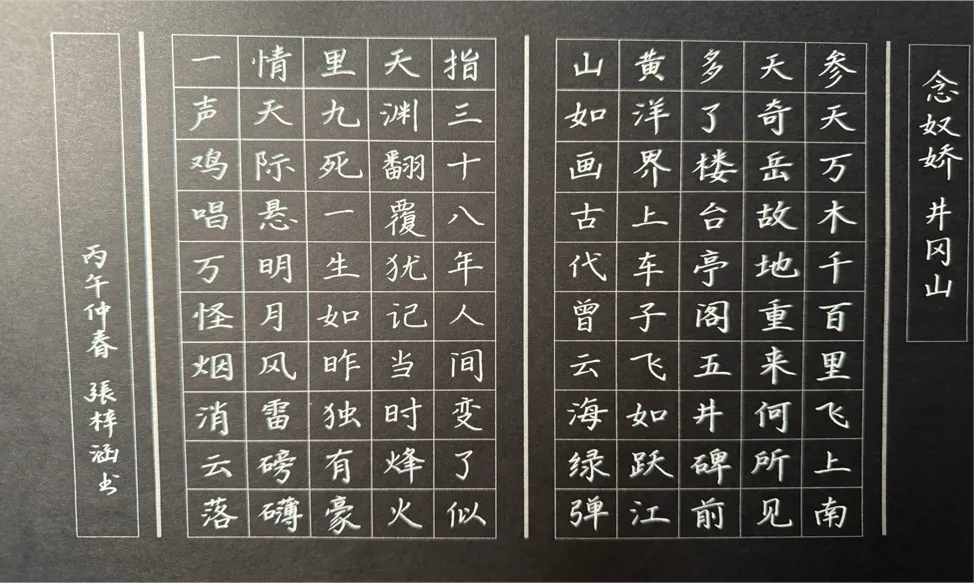 念奴娇 井冈山
参天万木千百里飞上南
天奇岳故地重来何所见
多了楼台亭阁五井碑前
黄洋界上车子飞如跃江
山如画古代曾云海绿弹
指三十八年人间变了似
天渊翻覆犹记当时烽火
里九死一生如昨独有豪
情天际悬明月风雷磅礴
一声鸡唱万怪烟消云落
丙午仲春 張梓涵书